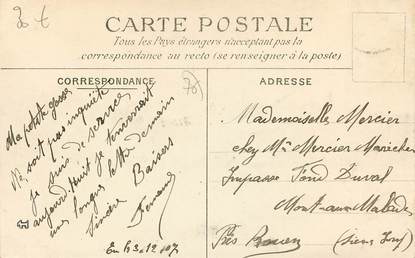 CARTE POSTALE
Tous les Pays étrangers n'acceptant pas la
correspondance au recto (se renseigner à la poste)
CORRESPONDANCE
Ma petite gosse
soit pas inquiète
je suis de service
aujourd'huit je t'enverrait
une longue lettre demain
Tendre Baisers
Fernand
En 13-12-07
ADRESSE
Mademoiselle Mercier
chez Mr Mercier Marécher
Impasse Fond Duval
Mont-aux-Malades
Près Rouen (Seine Inf)